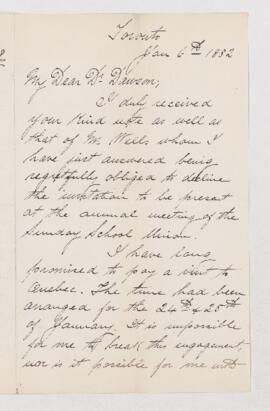 Toronto
Jan 6th 1882
My Dear Dr Dawson;
I duly received
your kind note as well as
that of Mr. Wells whom I
have just answered being
regretfully obliged to decline
the invitation to be present
at the annual meeting of the
Sunday School Union.
I have long
promised to pay a visit to
Quebec. The time had been
arranged for the 24th & 25th
of January. It is impossible
for me to break this engagement,
nor is it possible for me with-